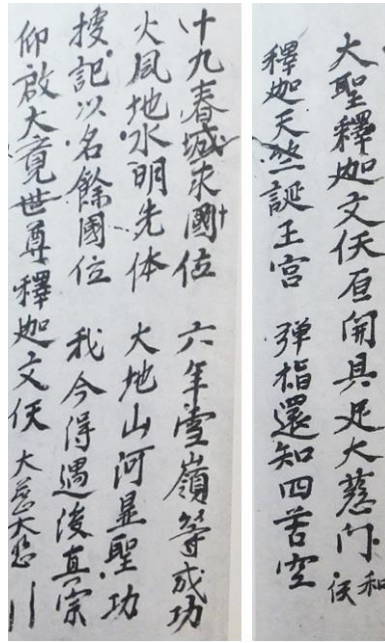 大聖釋迦文仸亘開具足大慈门 和仸
釋迦天然誕王宮 弹指還知四苦空
十九春城求國位 六年雪嶺等成功
火風地水明先体 大地山河显聖功
授記以名餘國位 我今得遇後真宗
仰啟大竟世尊釋迦文仸 大慈大悲